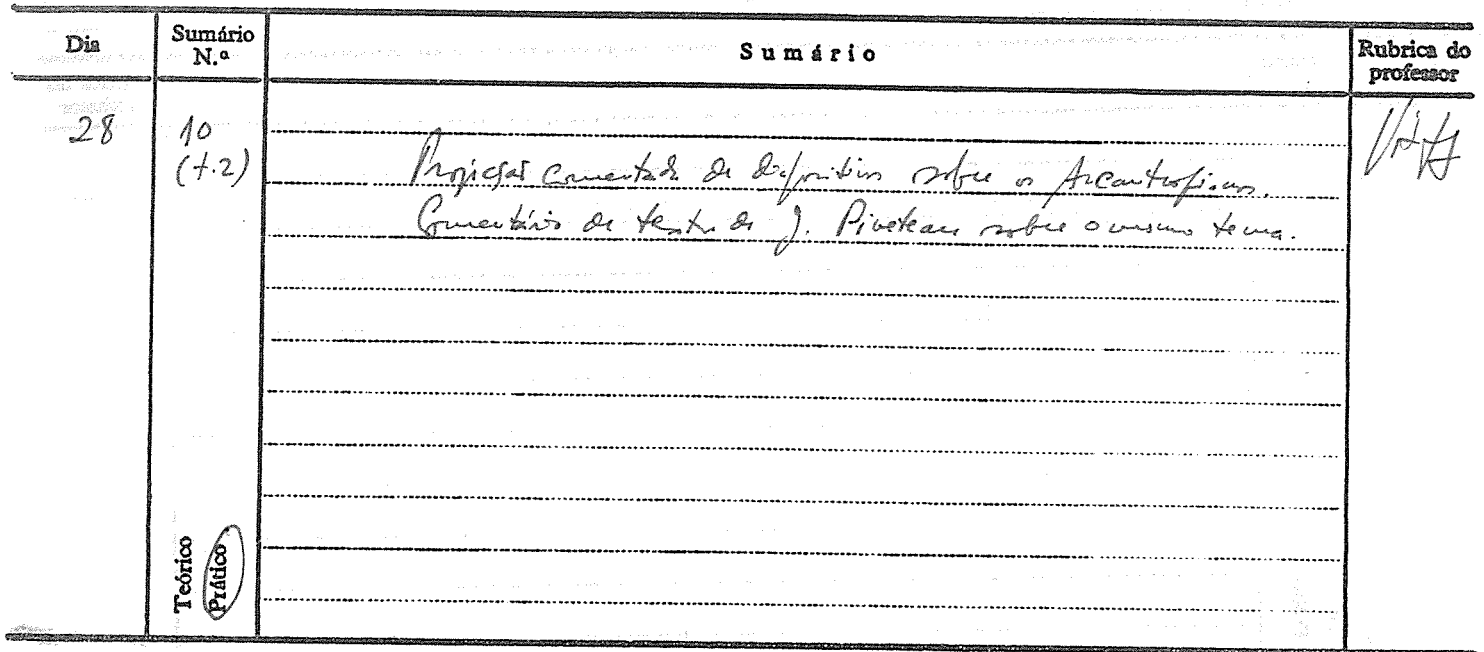 Dia
Sumário
N.º
Sumário
Rubrica do
professor
28
10
(t.2)
Projecção comentada de diapositivos sobre os Arcantropianos.
Comentário de texto de J. Piveteau sobre o mesmo tema.
Teórico
Prático